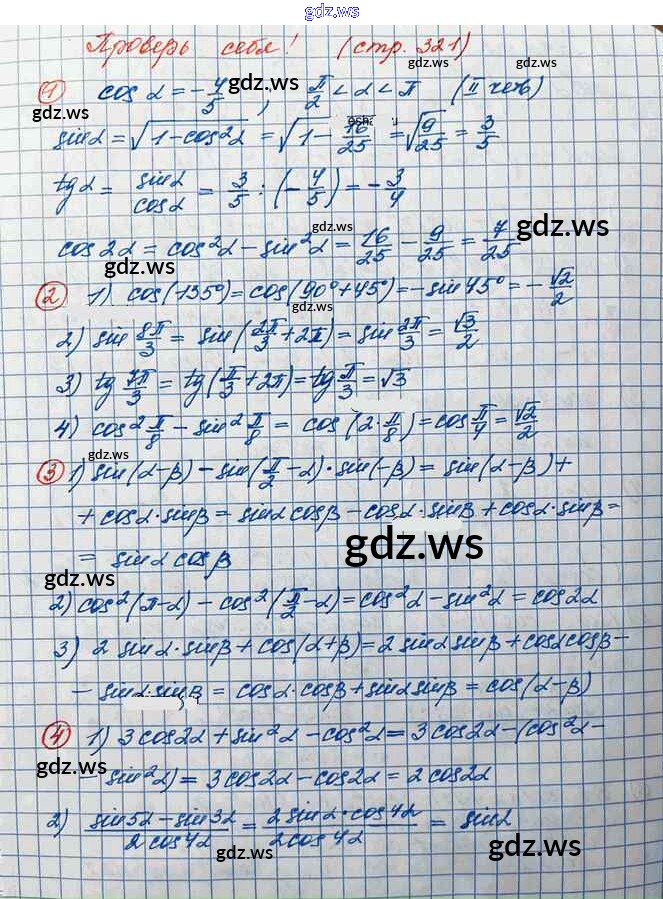 gdz.ws
Проверь себя! (стр. 321)
gdz.ws
① cos α = -4/5, π/2 < α < π (II четв)
gdz.ws gdz.ws
sin α = √(1 - cos²α) = √(1 - 16/25) = √(9/25) = 3/5
tg α = sin α / cos α = 3/5 : (-4/5) = -3/4
gdz.ws gdz.ws
cos 2α = cos²α - sin²α = 16/25 - 9/25 = 7/25
gdz.ws
② 1) cos(135°) = cos(90° + 45°) = -sin 45° = -√2/2
gdz.ws
2) sin 8π/3 = sin(2π/3 + 2π) = sin 2π/3 = √3/2
3) tg 7π/3 = tg(π/3 + 2π) = tg π/3 = √3
4) cos² π/8 - sin² π/8 = cos(2·π/8) = cos π/4 = √2/2
gdz.ws
③ 1) sin(α-β) - sin(π/2 - α)·sin(-β) = sin(α-β) +
+ cos α·sin β = sin α cos β - cos α·sin β + cos α·sin β =
gdz.ws
= sin α cos β
gdz.ws
2) cos²(π-α) - cos²(π/2 - α) = cos²α - sin²α = cos 2α
3) 2 sin α·sin β + cos(α+β) = 2 sin α sin β + cos α cos β -
- sin α·sin β = cos α·cos β + sin α sin β = cos(α-β)
④ 1) 3 cos 2α + sin²α - cos²α = 3 cos 2α - (cos²α -
gdz.ws gdz.ws
sin²α) = 3 cos 2α - cos 2α = 2 cos 2α
2) (sin 5α - sin 3α) / (2 cos 4α) = (2 sin α·cos 4α) / (2 cos 4α) = sin α
gdz.ws gdz.ws